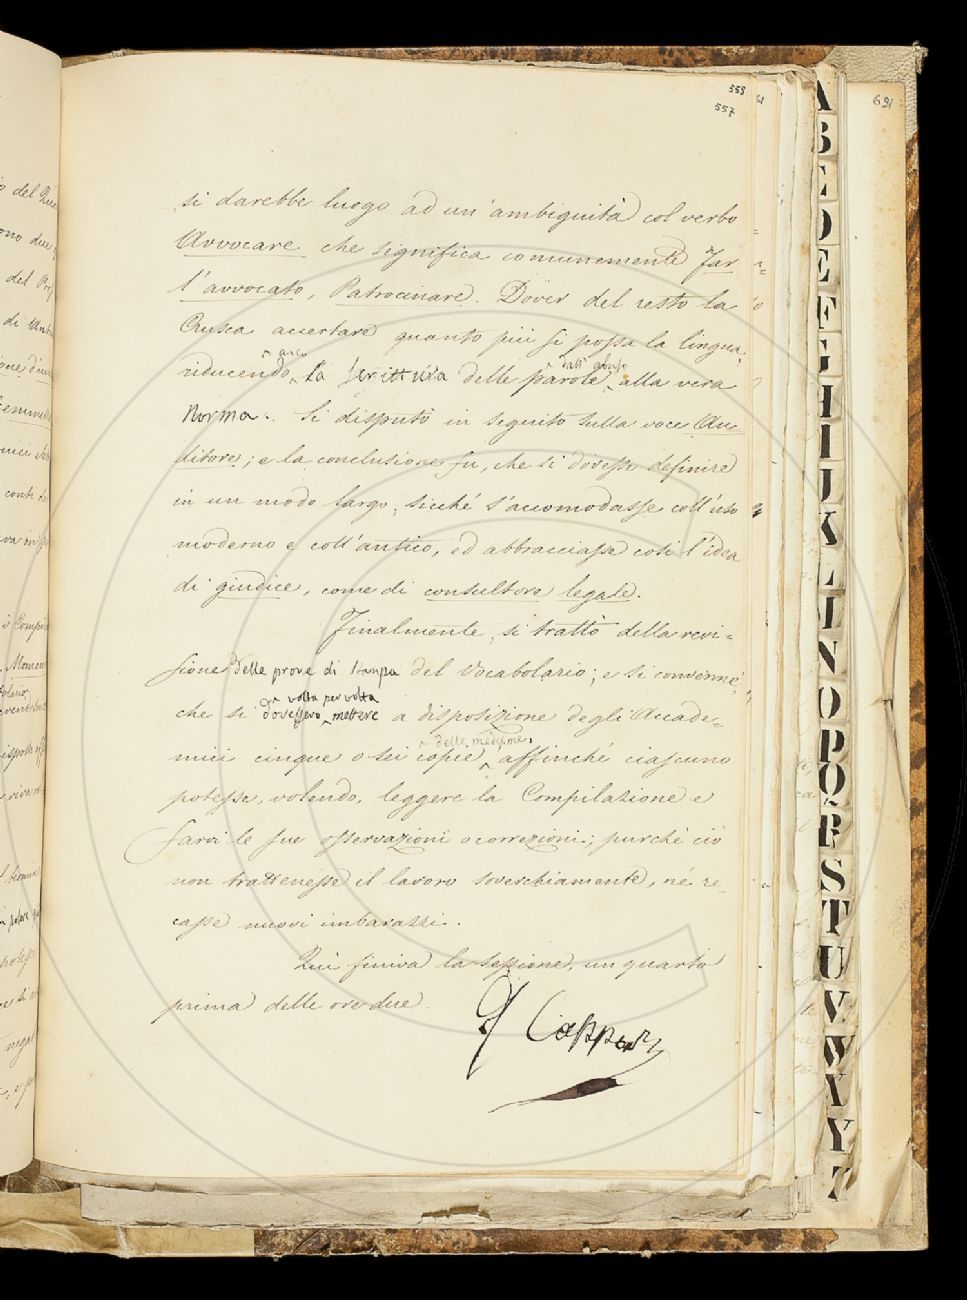 558
557
61
691
si darebbe luogo ad un'ambiguità col verbo
Avvocare che significa comunemente Far
l'avvocato, Patrocinare. Dover del resto la
Crusca accertare quanto più si possa la lingua,
anco dall'abuso
riducendo la scrittura delle parole alla vera
norma. Si disputò in seguito sulla voce Au-
ditore; e la conclusione fu, che si dovesse definire
in un modo largo, sicché s'accomodasse coll'uso
moderno e coll'antico, ed abbracciasse così l'idea
di giudice, come di consultore legale.
Finalmente, si trattò della revi-
sione delle prove di stampa del Vocabolario; e si convenne,
volta per volta
che si dovessero mettere a disposizione degli Accade-
delle medesime,
mici cinque o sei copie affinché ciascuno
potesse, volendo, leggere la Compilazione e
farvi le sue osservazioni o correzioni; purché ciò
non trattenesse il lavoro soverchiamente, né re-
casse nuovi imbarazzi.
Qui finiva la sessione, un quarto
prima delle ore due.
G Capponi
A
B
C
D
E
F
G
H
I
J
K
L
M
N
O
P
Q
R
S
T
U
V
W
X
Y
Z